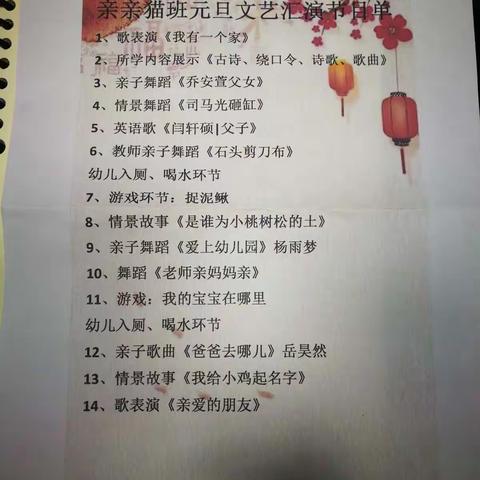 亲亲猫班元旦文艺汇演节目单
1、歌表演《我有一个家》
2、所学内容展示《古诗、绕口令、诗歌、歌曲》
3、亲子舞蹈《乔安萱父女》
4、情景舞蹈《司马光砸缸》
5、英语歌《闫轩硕|父子》
6、教师亲子舞蹈《石头剪刀布》
幼儿入厕、喝水环节
7、游戏环节：捉泥鳅
8、情景故事《是谁为小桃树松的土》
9、亲子舞蹈《爱上幼儿园》杨雨梦
10、舞蹈《老师亲妈妈亲》
11、游戏：我的宝宝在哪里
幼儿入厕、喝水环节
12、亲子歌曲《爸爸去哪儿》岳昊然
13、情景故事《我给小鸡起名字》
14、歌表演《亲爱的朋友》